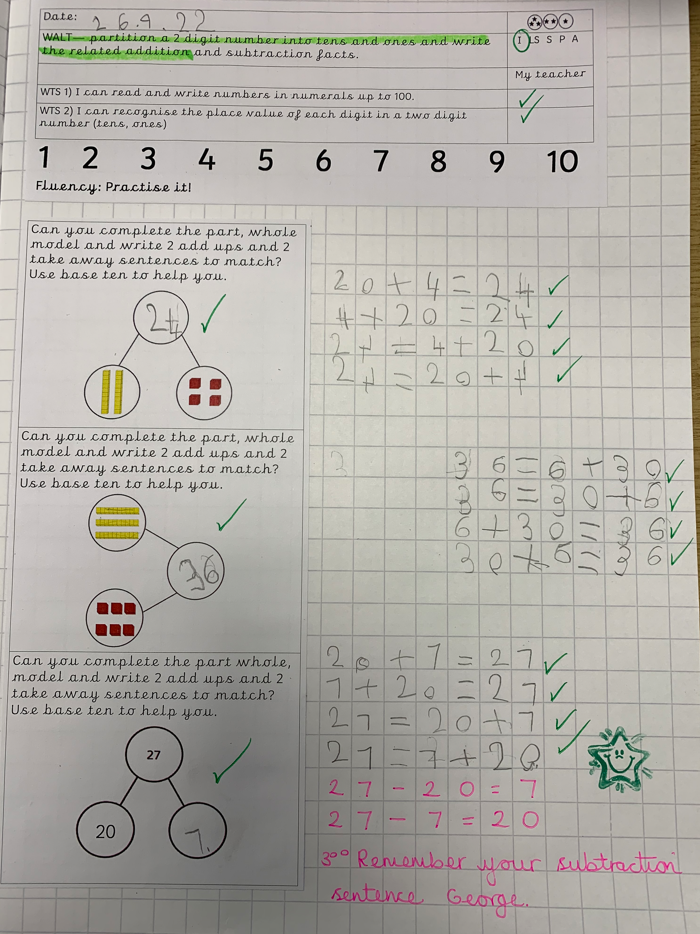 Date: 26.9.22
WALT- partition a 2 digit number into tens and ones and write
the related addition and subtraction facts.
I LS S P A
My teacher
WTS 1) I can read and write numbers in numerals up to 100.
WTS 2) I can recognise the place value of each digit in a two digit
number (tens, ones)
1 2 3 4 5 6 7 8 9 10
Fluency: Practise it!
Can you complete the part, whole
model and write 2 add ups and 2
take away sentences to match?
Use base ten to help you.
24
20+4=24
4+20=24
24=4+20
24=20+4
Can you complete the part, whole
model and write 2 add ups and 2
take away sentences to match?
Use base ten to help you.
36
36=6+30
36=30+6
6+30=36
30+6=36
Can you complete the part whole,
model and write 2 add ups and 2
take away sentences to match?
Use base ten to help you.
27
20
7.
20+7=27
7+20=27
27=20+7
27=7+20
27-20=7
27-7=20
Remember your subtraction
sentence George.